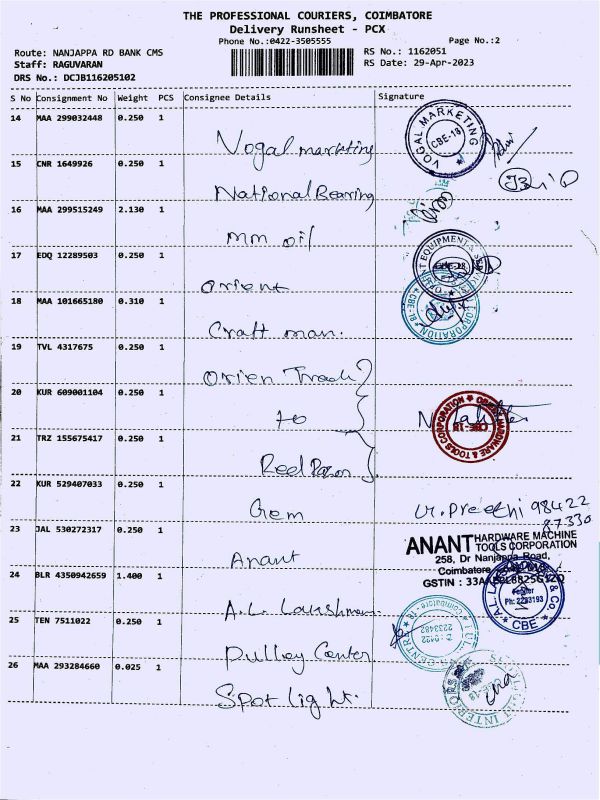 THE PROFESSIONAL COURIERS, COIMBATORE
Delivery Runsheet - PCX
Phone No.:0422-3505555 Page No.:2
Route: NANJAPPA RD BANK CMS RS No.: 1162051
Staff: RAGUVARAN RS Date: 29-Apr-2023
DRS No.: DCJB116205102
S No Consignment No Weight PCS Consignee Details Signature
14 MAA 299032448 0.250 1
Vogal marketing VOGAL MARKETING CBE-18
15 CNR 1649926 0.250 1
National Bearing
16 MAA 299515249 2.130 1
mm oil
17 EDQ 12289503 0.250 1
Orient EQUIPMENT
18 MAA 101665180 0.310 1
Craft man. CORPORATION
19 TVL 4317675 0.250 1
Orien Trade
20 KUR 609001104 0.250 1
to HARDWARE & TOOLS CORPORATION
21 TRZ 155675417 0.250 1
Reel
22 KUR 529407033 0.250 1
Gem Preethi 98422
87330
23 JAL 530272317 0.250 1
Anant ANANT HARDWARE MACHINE
TOOLS CORPORATION
258, Dr Nanjappa Road,
Coimbatore
GSTIN : 33A
24 BLR 4350942659 1.400 1
A.L. Lakshman A.L. & CO. Ph: 2233193 CBE
25 TEN 7511022 0.250 1
Pulley Center Coimbatore 2233482
26 MAA 293284660 0.025 1
Spot light. INTERIORS